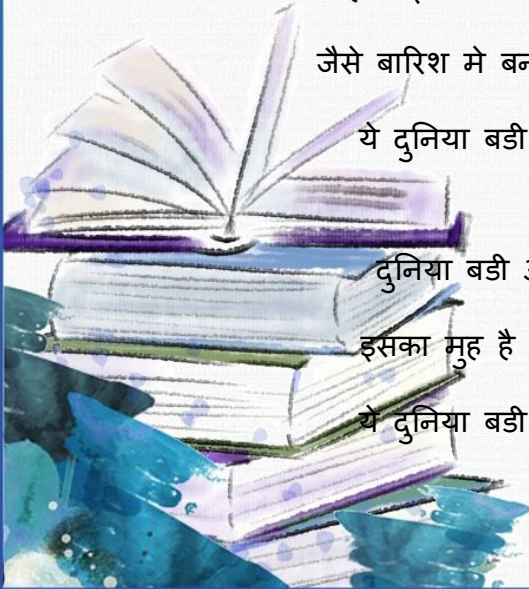 जैसे बारिश मे
ये दुनिया बडी
दुनिया बडी
इसका मुह है
ये दुनिया बडी